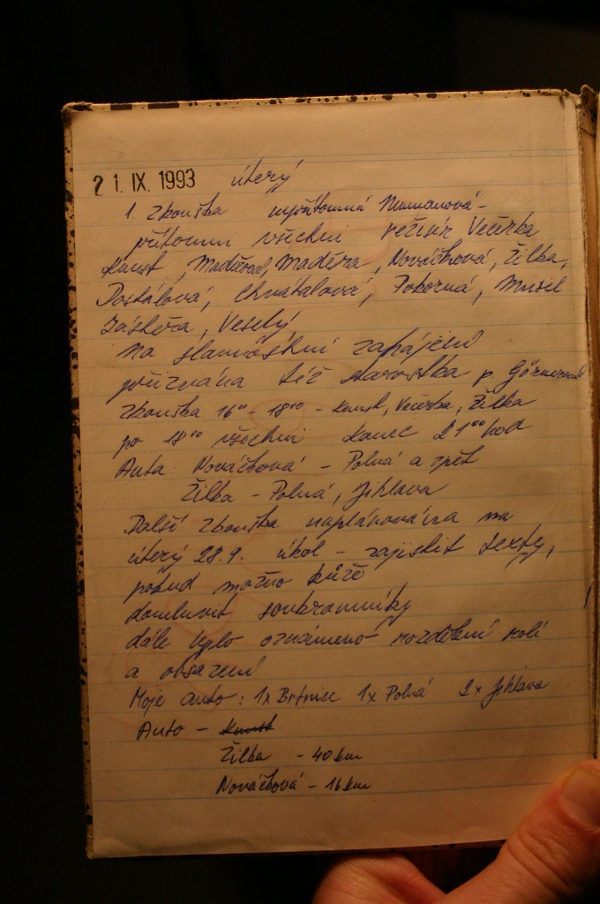 21. IX. 1993 úterý
1. zkouška nepřítomná Numanová -
přítomni všichni režisér Večerka
Kunst, Maděra, Nováčková, Žilka,
Dostálová, Chvátalová, Pokorná, Musil
Zástěra, Veselý
na slavnostní zahájení
přizvána též starostka p.
zkouška 16⁰⁰ - 18⁰⁰ - Kunst, Večerka, Žilka
po 18⁰⁰ všichni konec 21⁰⁰ hod
Auta: Nováčková - Polná a zpět
Žilka - Polná, Jihlava
Další zkouška naplánována na
úterý 28.9. úkol - zajistit texty,
pokud možno kůže
domluvit soukromníky
dále bylo oznámeno rozdělení rolí
a obsazení
Moje auto: 1x Brtnice 1x Polná 2x Jihlava
Auto - Kunst
Žilka - 40 km
Nováčková - 16 km